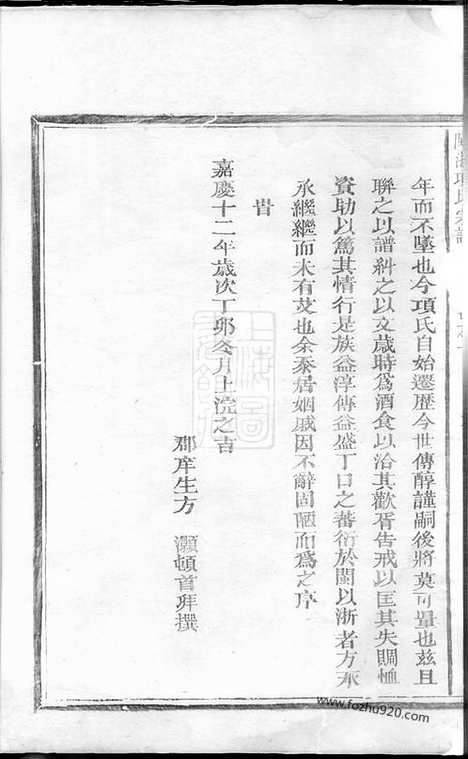 年而不墜也今項氏自始遷歷今世傳醇謹嗣後將莫可量也茲且
聯之以譜糾之以文歲時爲酒食以洽其歡胥告戒以匡其失賙恤
資助以篤其情行是族益淳傳益盛丁口之蕃衍於閩以浙者方承
承繼繼而未有艾也余忝居姻戚因不辭固陋而爲之序
旹
嘉慶十二年歲次丁卯令月上浣之吉
郡庠生方灝頓首拜撰
項氏宗譜
www.fozhu920.com